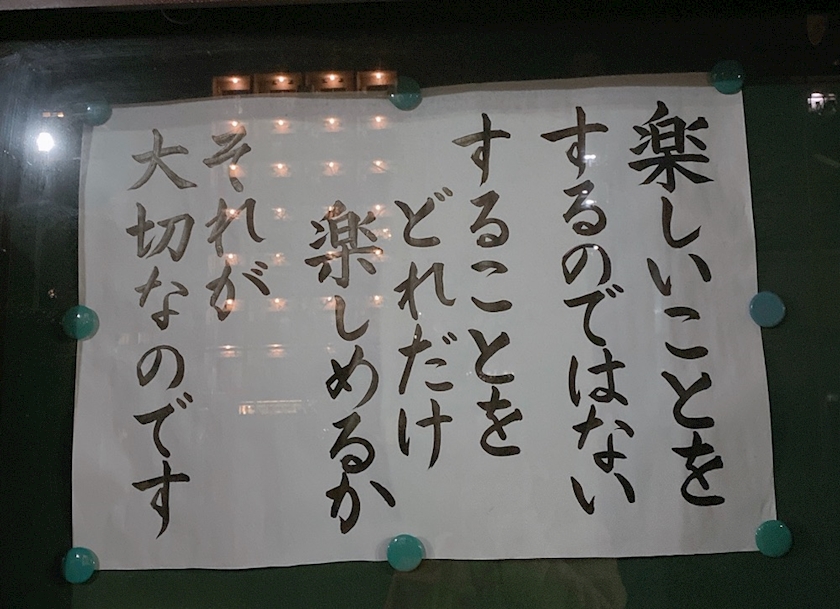 楽しいことを
するのではない
することを
どれだけ
楽しめるか
それが
大切なのです